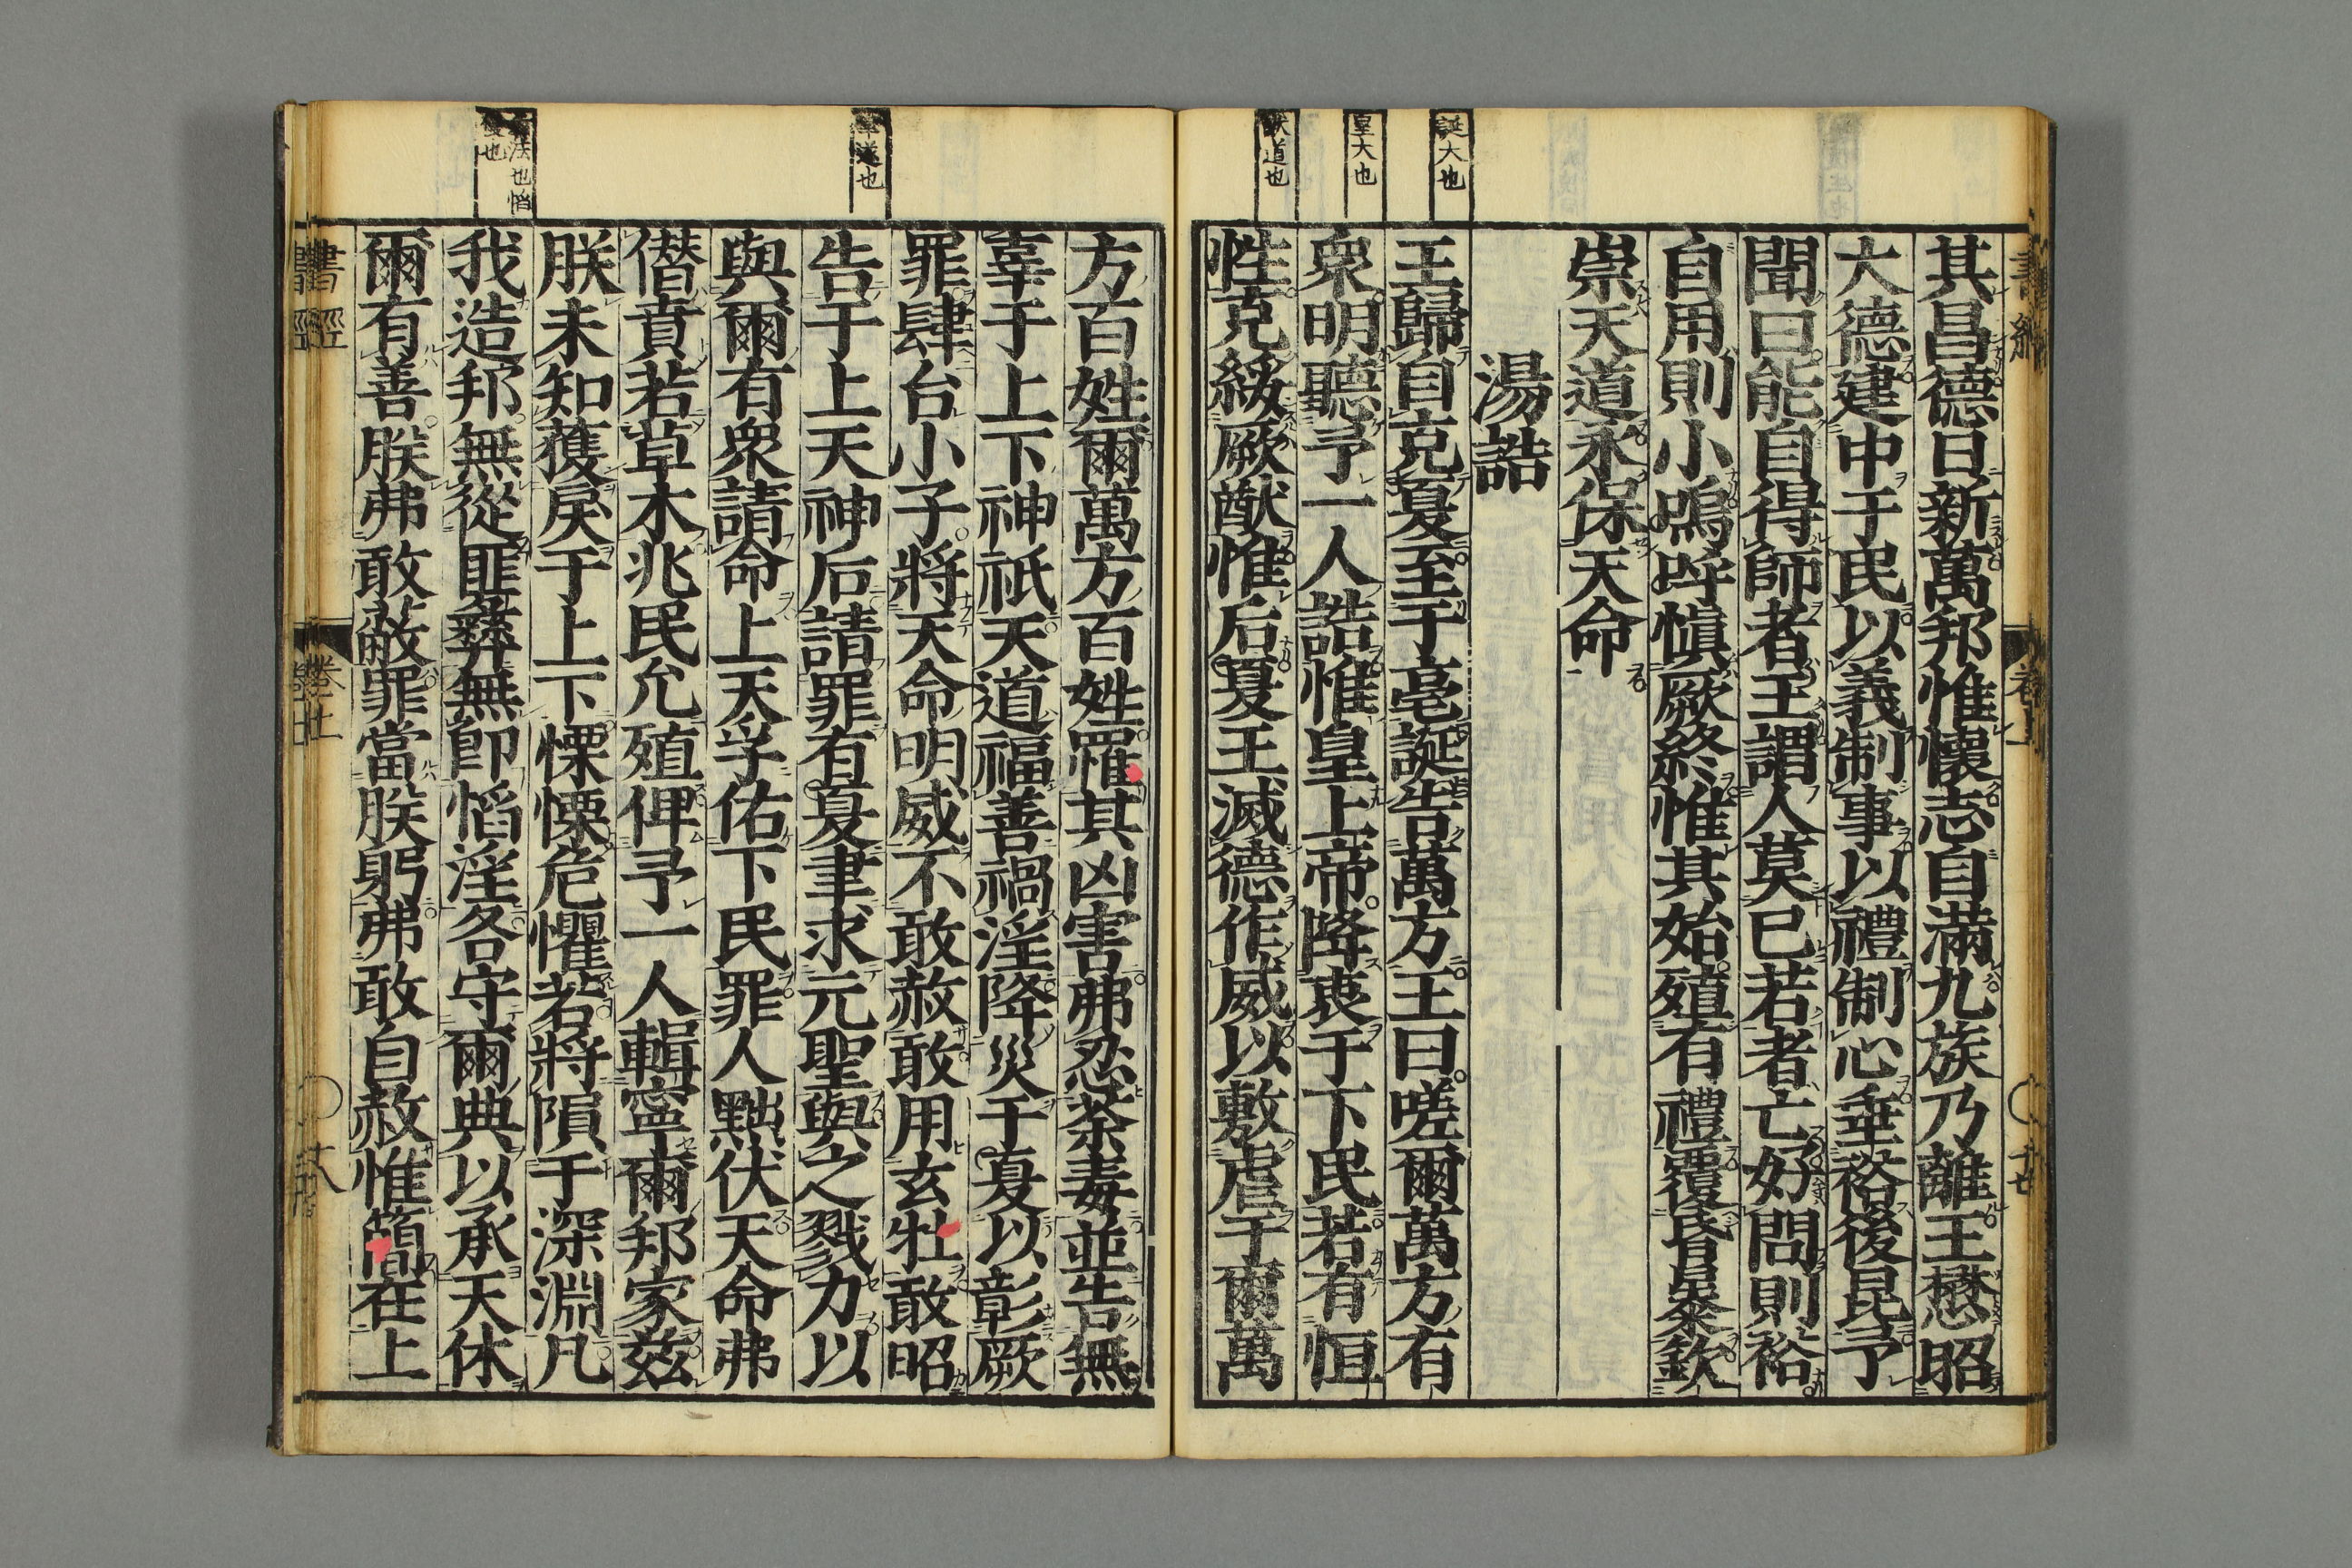 誕大也
皇大也
猷道也
其昌德日新萬邦惟懷志自滿九族乃離王懋昭
大德建中于民以義制事以禮制心垂裕後昆予
聞曰能自得師者王謂人莫已若者亡好問則裕
自用則小嗚呼愼厥終惟其始殖有禮覆昏暴欽
崇天道永保天命
湯誥
王歸自克夏至于亳誕告萬方王曰嗟爾萬方有
衆明聽予一人誥惟皇上帝降衷于下民若有恒
性克綏厥猷惟后夏王滅德作威以敷虐于爾萬
遂也
法也慆
慢也
方百姓爾萬方百姓罹其凶害弗忍荼毒並告無
辜于上下神祇天道福善禍淫降災于夏以彰厥
罪肆台小子將天命明威不敢赦敢用玄牡敢昭
告于上天神后請罪有夏聿求元聖與之戮力以
與爾有衆請命上天孚佑下民罪人黜伏天命弗
僭賁若草木兆民允殖俾予一人輯寧爾邦家茲
朕未知獲戾于上下慄慄危懼若將隕于深淵凡
我造邦無從匪彝無卽慆淫各守爾典以承天休
爾有善朕弗敢蔽罪當朕躬弗敢自赦惟簡在上
書經
卷上